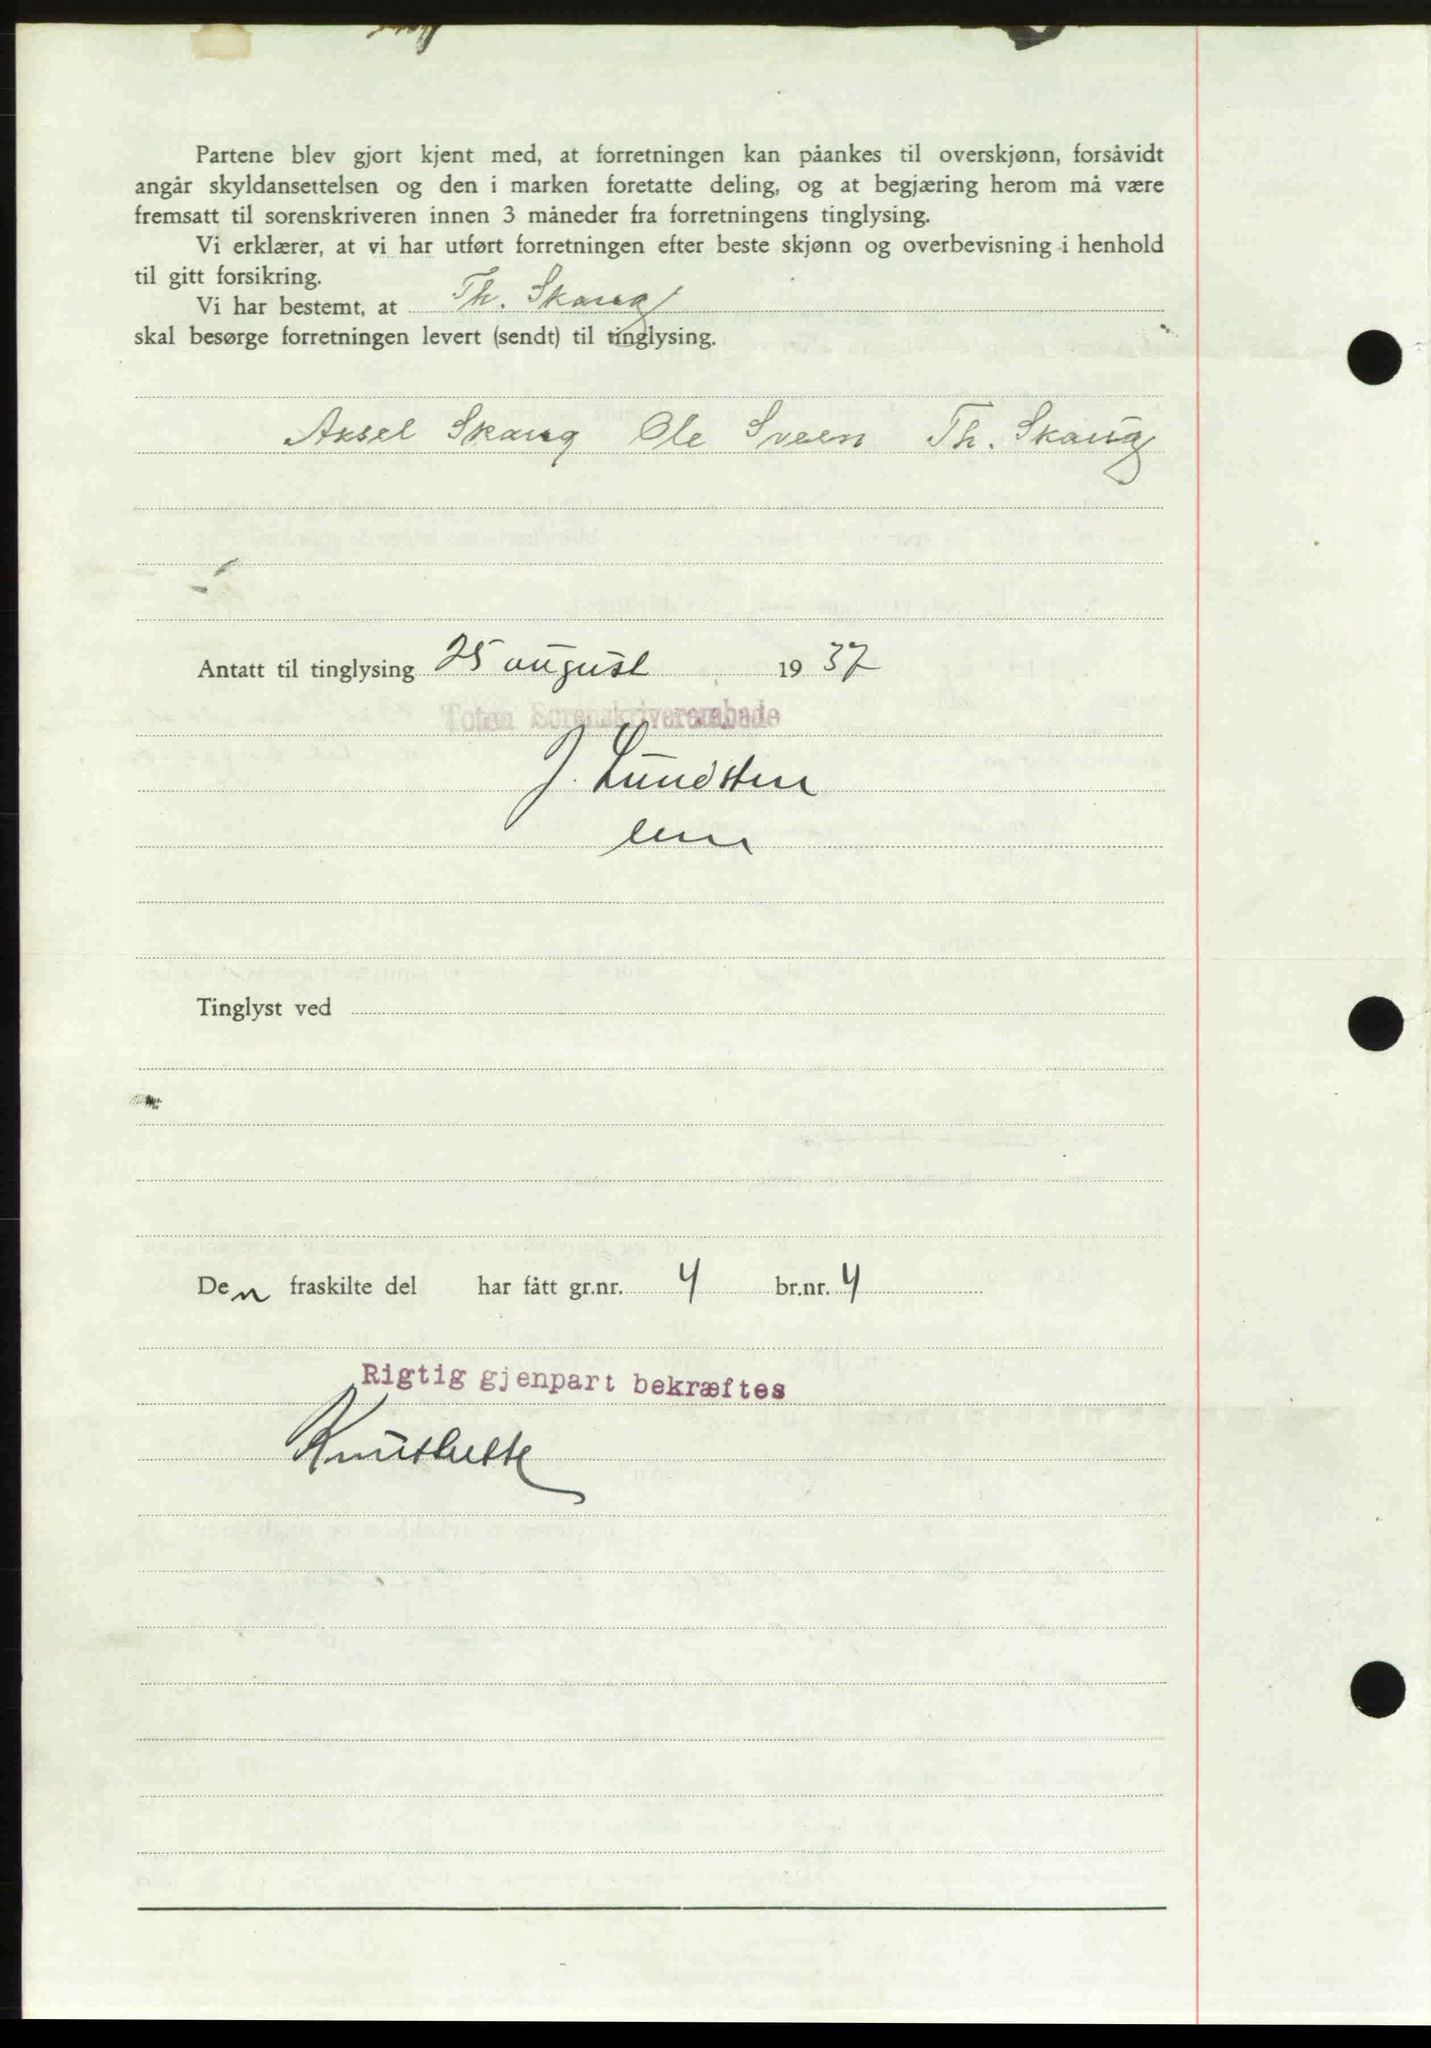 Partene blev gjort kjent med, at forretningen kan påankes til overskjønn, forsåvidt
angår skyldansettelsen og den i marken foretatte deling, og at begjæring herom må være
fremsatt til sorenskriveren innen 3 måneder fra forretningens tinglysing.
Vi erklærer, at vi har utført forretningen efter beste skjønn og overbevisning i henhold
til gitt forsikring.
Vi har bestemt, at Th. Skaug
skal besørge forretningen levert (sendt) til tinglysing.
Aksel Skaug Ole Sveen Th. Skaug
Antatt til tinglysing 25 august 1937
Toten Sorenskriverembede
J. Lundsten
Tinglyst ved
Den fraskilte del har fått gr.nr. 4 br.nr. 4
Rigtig gjenpart bekræftes